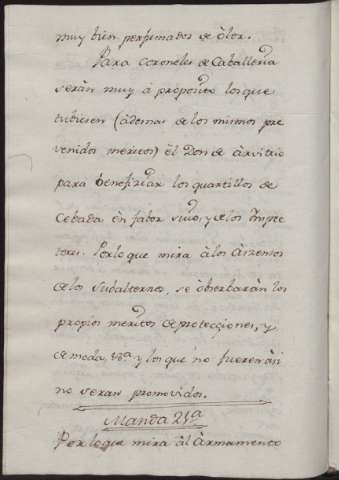 muy bien perfumados de òlor.
Para coroneles de Caballeria
seràn muy à proposito los que
tubiesen (àdemas de los mismos pre
venidos meritos) èl Don de àrvitrio
para benefiziar los quartillos de
Cebada èn fabor suio, y de los Inspec
tores. Por lo que mira à los Aszensos
de los subalternos, se òbserbaràn los
propios meritos de protecciones, y
de moda, &ª y los que no fueren àsi
no seran promovidos.
Manda 21ª
Por lo que mira àl Armamento